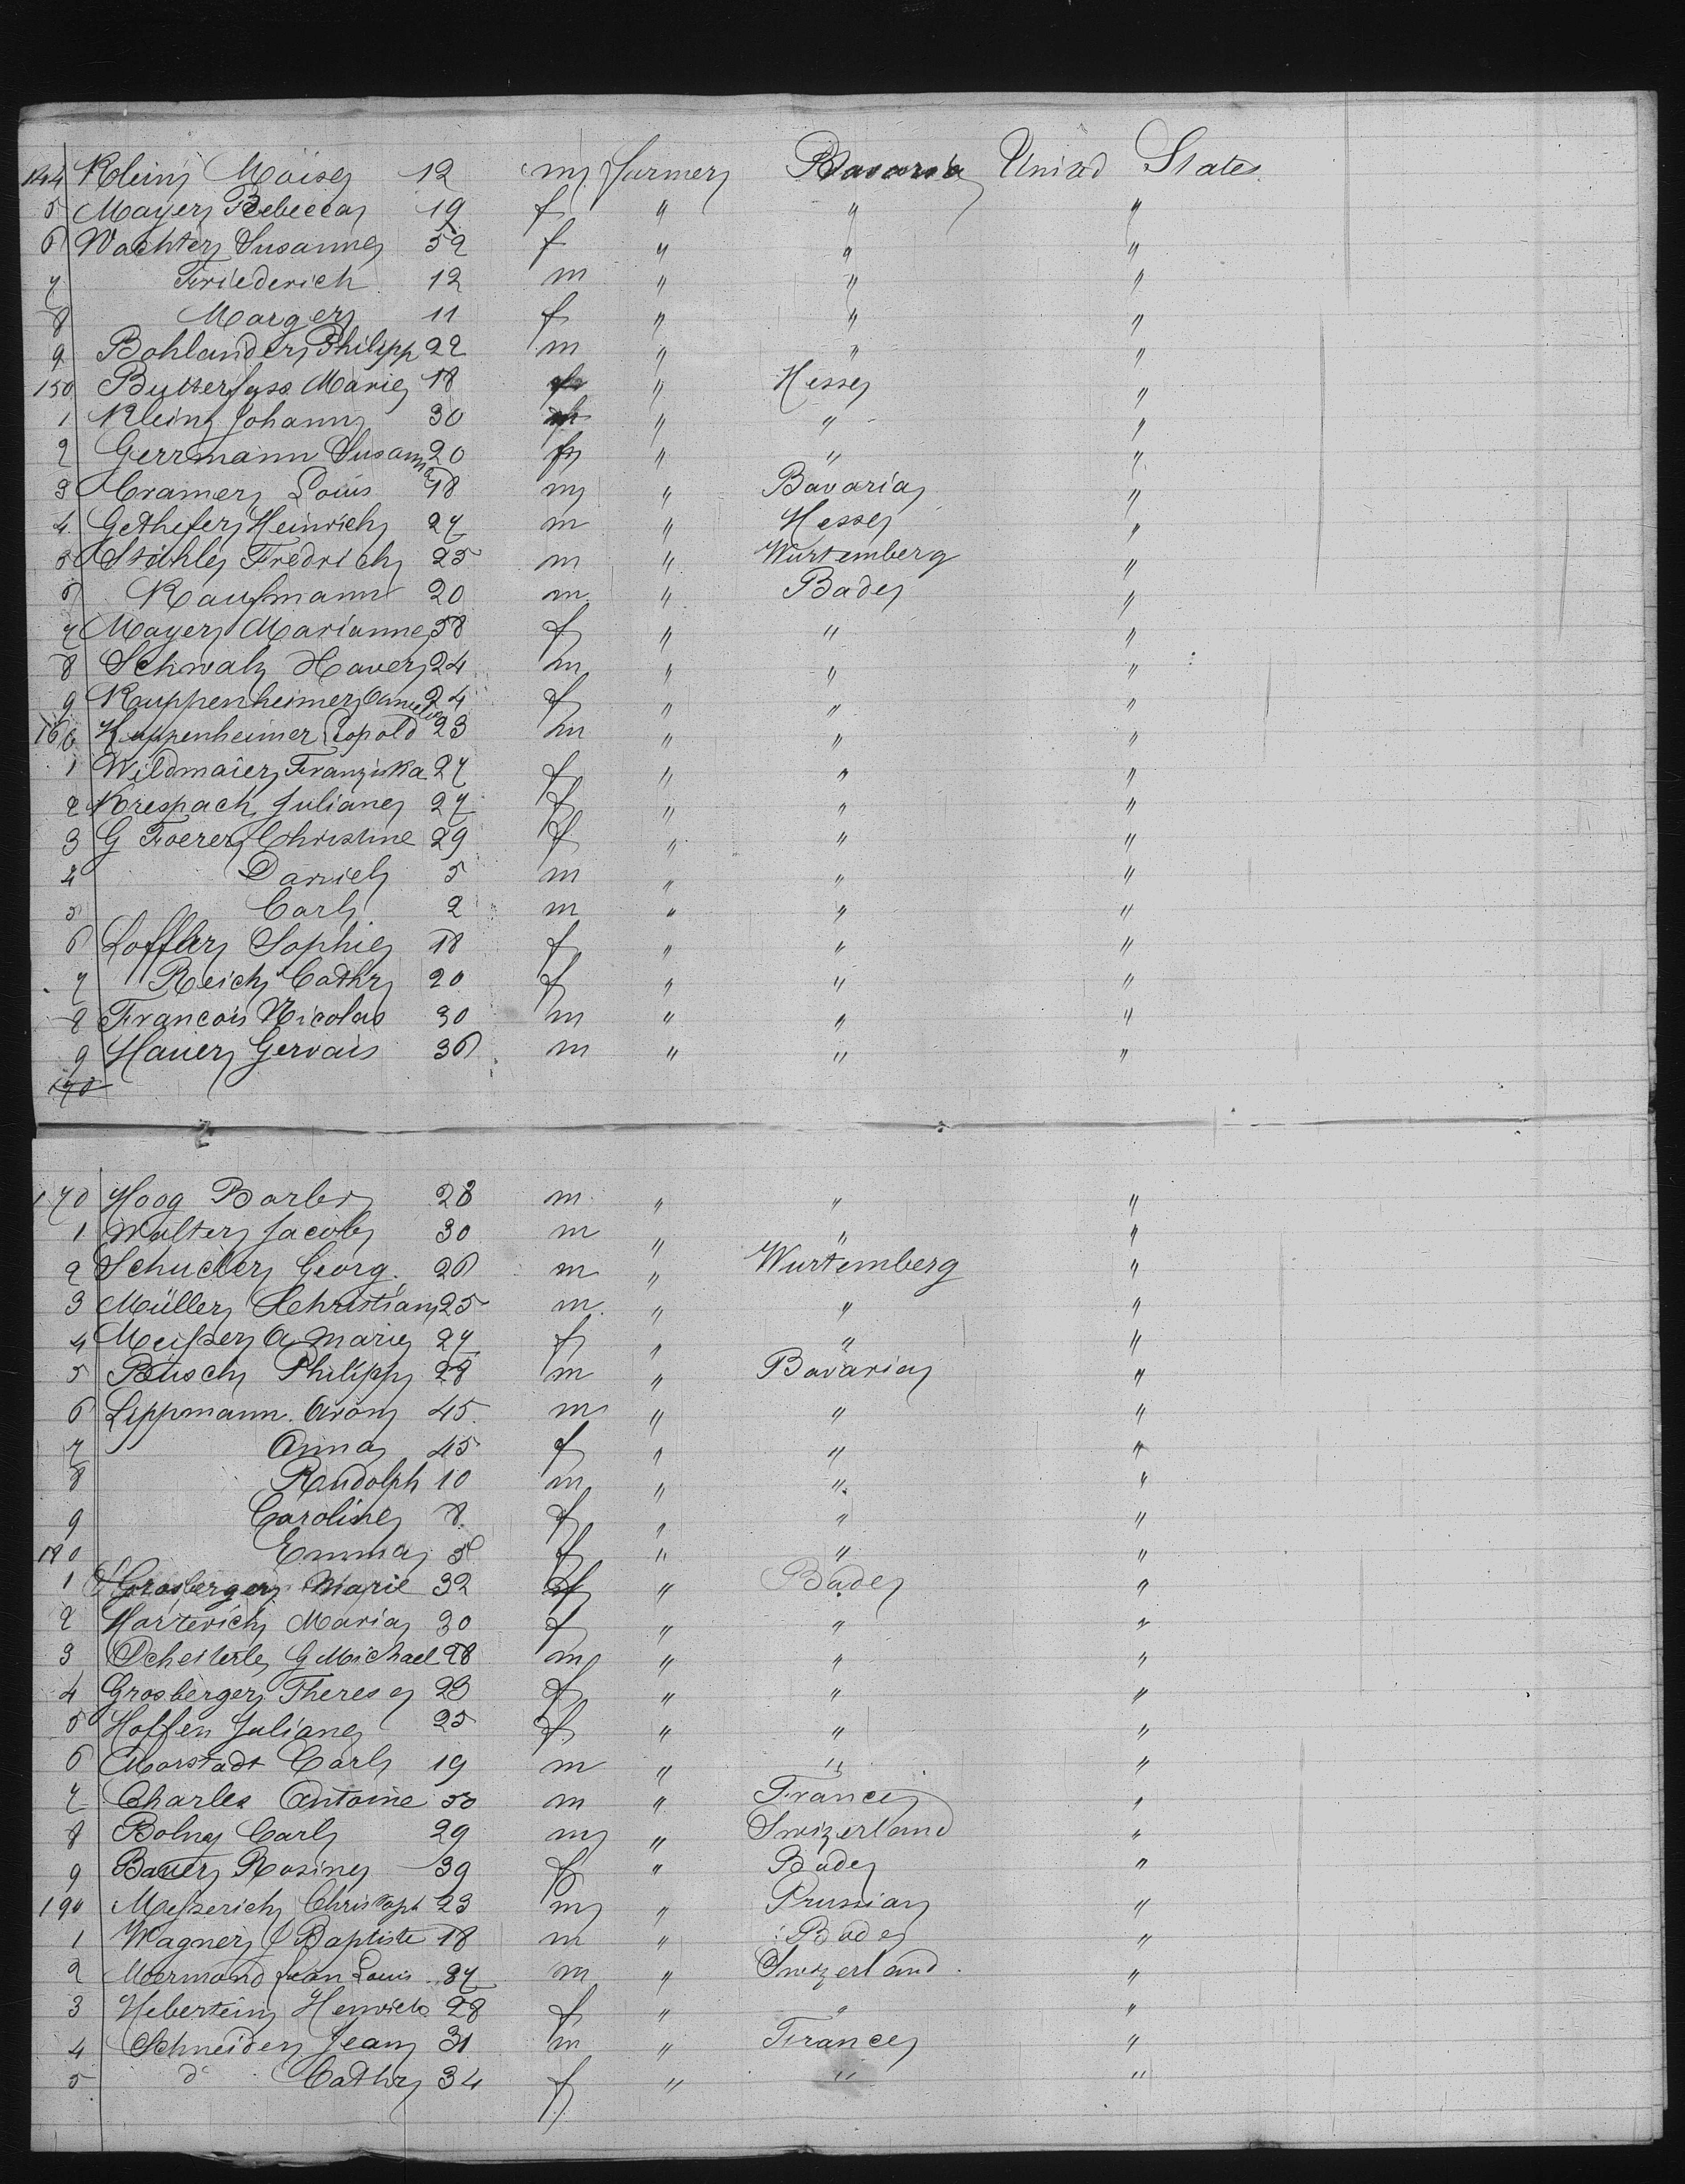 144 Klein Moise 12 m farmer Bavaria United States
5 Mayer Rebecca 19 f " " "
6 Wachter Susanne 52 f " " "
7 Friederich 12 m " " "
8 Marger 11 f " " "
9 Bohlander Philipp 22 m " " "
150 Butterfass Marie 18 " Hesse "
1 Klein Johann 30 " " "
2 Gerrmann Susanna 20 f " " "
3 Cramer Louis 18 m " Bavaria "
4 Gethefer Heinrich 27 m " Hesse "
5 Stähle Fredrich 25 m " Wurtemberg "
6 Kaufmann 20 m " Bade "
7 Mayer Marianne 58 f " " "
8 Schwalz Xaver 24 m " " "
9 Kauppenheimer 24 f " " "
166 Kuppenheimer Leopold 23 m " " "
1 Wildmaier Franziska 27 f " " "
2 Krespach Juliane 27 f " " "
3 G Foerer Christine 29 f " " "
4 Daniel 5 m " " "
5 Carl 2 m " " "
6 Loffler Sophie 18 f " " "
7 Reich Cathr 20 f " " "
8 Francois Nicolas 30 m " " "
9 Hauer Gervais 36 m " " "
170
170 Hoog Barbr 28 m " " "
1 Walter Jacob 30 m " " "
2 Schucler Georg. 26 m " Wurtemberg "
3 Müller Christian 25 m " " "
4 Meißer A Marie 27 f " " "
5 Busch Philipp 28 m " Bavaria "
6 Lippmann Aron 45 m " " "
7 Anna 45 f " " "
8 Rudolph 10 m " " "
9 Caroline 8 f " " "
180 Emma f " " "
1 Grosberger Marie 32 f " Bade "
2 Harterich Maria 30 f " " "
3 Scheiterle G Michael 28 m " " "
4 Grosberger Theresa 23 f " " "
5 Hoffen Juliane 25 f " " "
6 Morstadt Carl 19 m " " "
7 Charles Antoine 50 m " France "
8 Bolna Carl 29 m " Swizerland "
9 Bauer Rosine 39 f " Bade "
190 Meßerich Christoph 23 m " Prussian "
1 Wagner J Baptiste 18 m " Bade "
2 Mermand Jean Louis 37 m " Swizerland "
3 Hebertein 28 f " " "
4 Schneider Jean 31 m " France "
5 do Cathr 34 f " " "